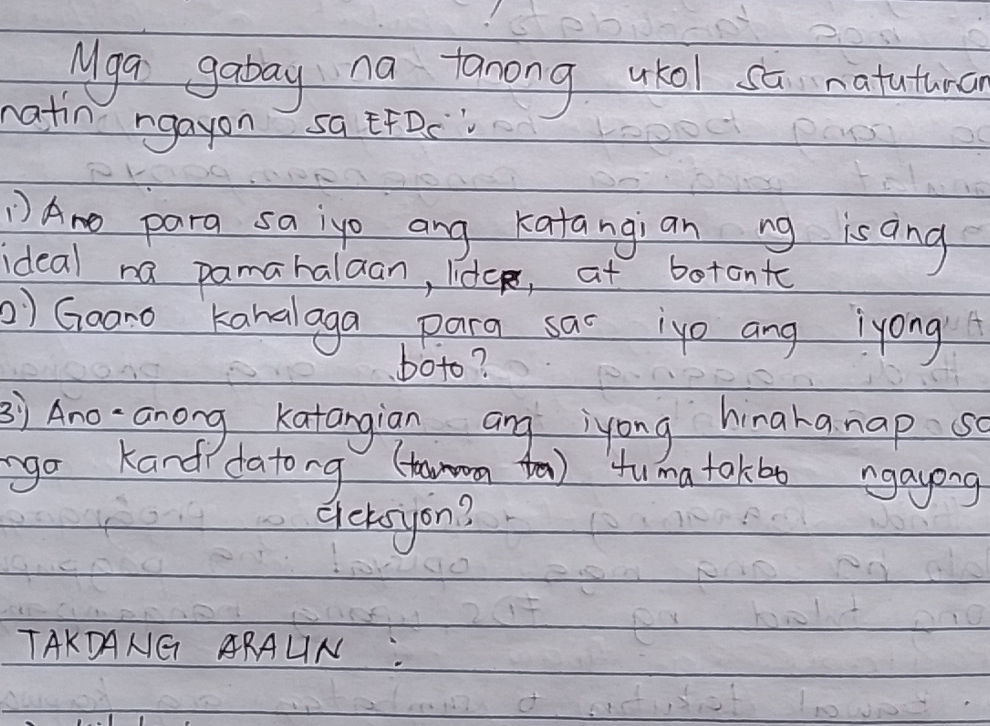 Mga gabay na tanong ukol sa natutunan
natin ngayon sa EFDS:
1.) Ano para sa iyo ang katangian ng isang
ideal na pamahalaan, lider, at botante
2.) Gaano kahalaga para sa iyo ang iyong
boto?
3.) Ano-anong katangian ang iyong hinahanap sa
mga kandidatong tumatakbo ngayong
eleksyon?
TAKDANG ARALIN :